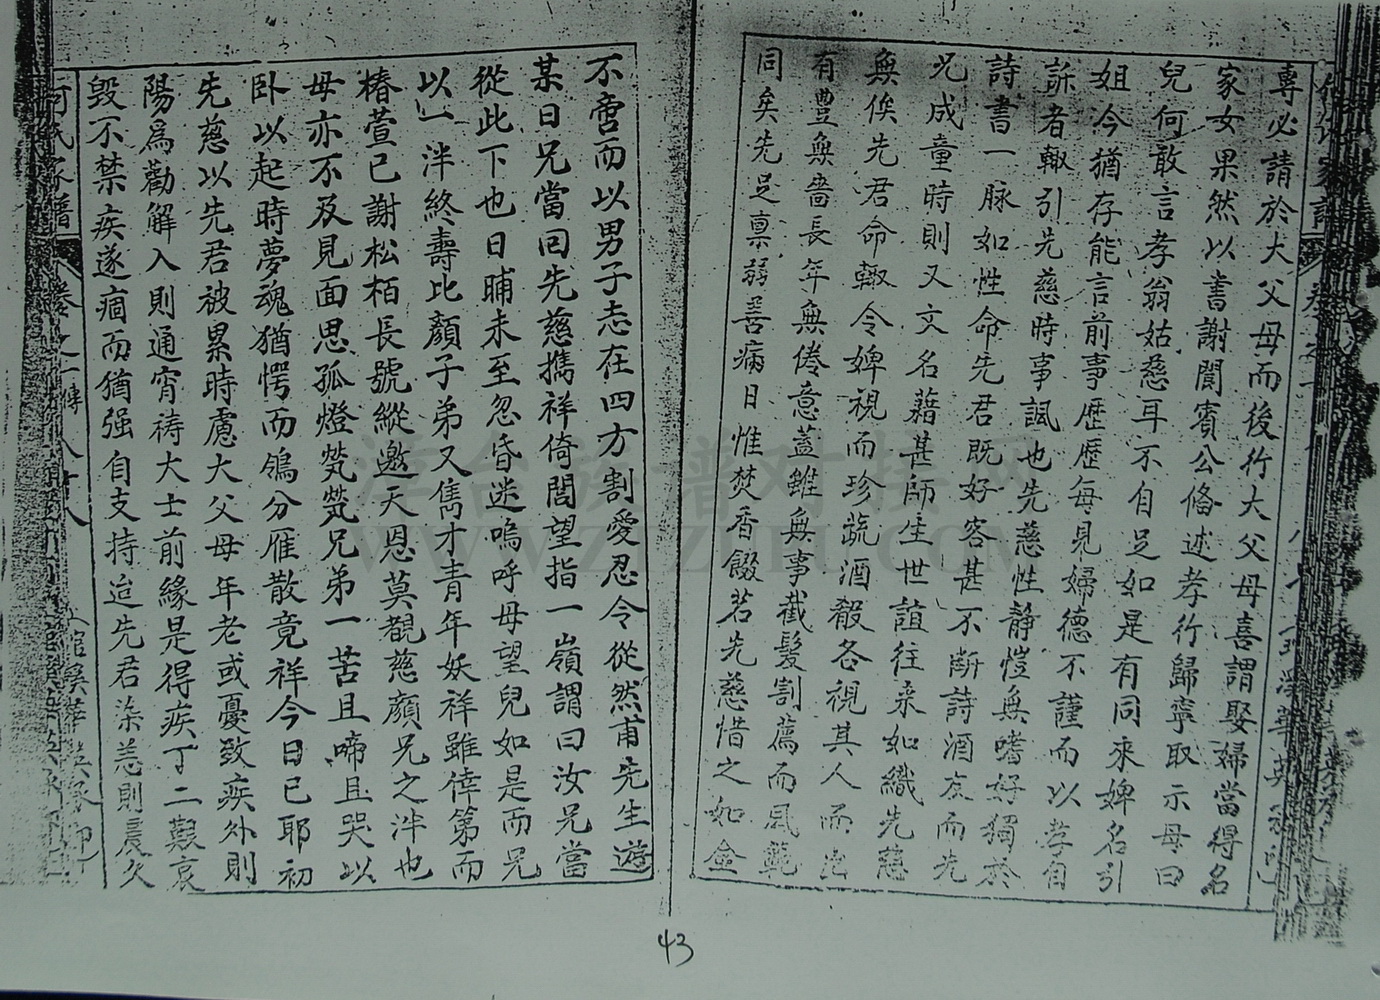 專必請於大父母而後行大父母喜謂娶婦當得名
家女果然以書謝閬賓公備述孝行歸寧取示母曰
兒何敢言孝翁姑慈耳不自足如是有同來婢名引
姐今猶存能言前事歷歷每見婦德不謹而以孝自
訴者輙引先慈時事諷也先慈性靜愷無嗜好獨於
詩書一脉如性命先君既好客甚不斷詩酒友而先
兄成童時則又文名藉甚師生世誼往來如織先慈
無俟先君命輙令婢視而珍蔬酒殽各視其人而出
有豐無嗇長年無倦意蓋雖無事截髮割薦而風範
同矣先兄禀弱善病日惟焚香餟茗先慈惜之如金
不啻而以男子志在四方割愛忍令從然甫先生遊
某日兄當回先慈攜祥倚閭望指一嶺謂曰汝兄當
從此下也日晡未至忽昏迷嗚呼母望兒如是而兄
以一泮終壽比顏子弟又雋才青年妖祥雖倖第而
椿萱已謝松栢長號縱邀天恩莫覩慈顏兄之泮也
母亦不及見面思孤燈煢煢兄弟一苦且啼且哭以
卧以起時夢魂猶愕而鴒分雁散竟祥今日已耶初
先慈以先君被累時慮大父母年老或憂致疾外則
陽為勸解入則通宵禱大士前緣是得疾丁二艱哀
毀不禁疾遂痼而猶强自支持迨先君染恙則晨夕
何氏家譜 卷之一 傳
43
洋台族谱对接网
WWW.ZIZHU.COM